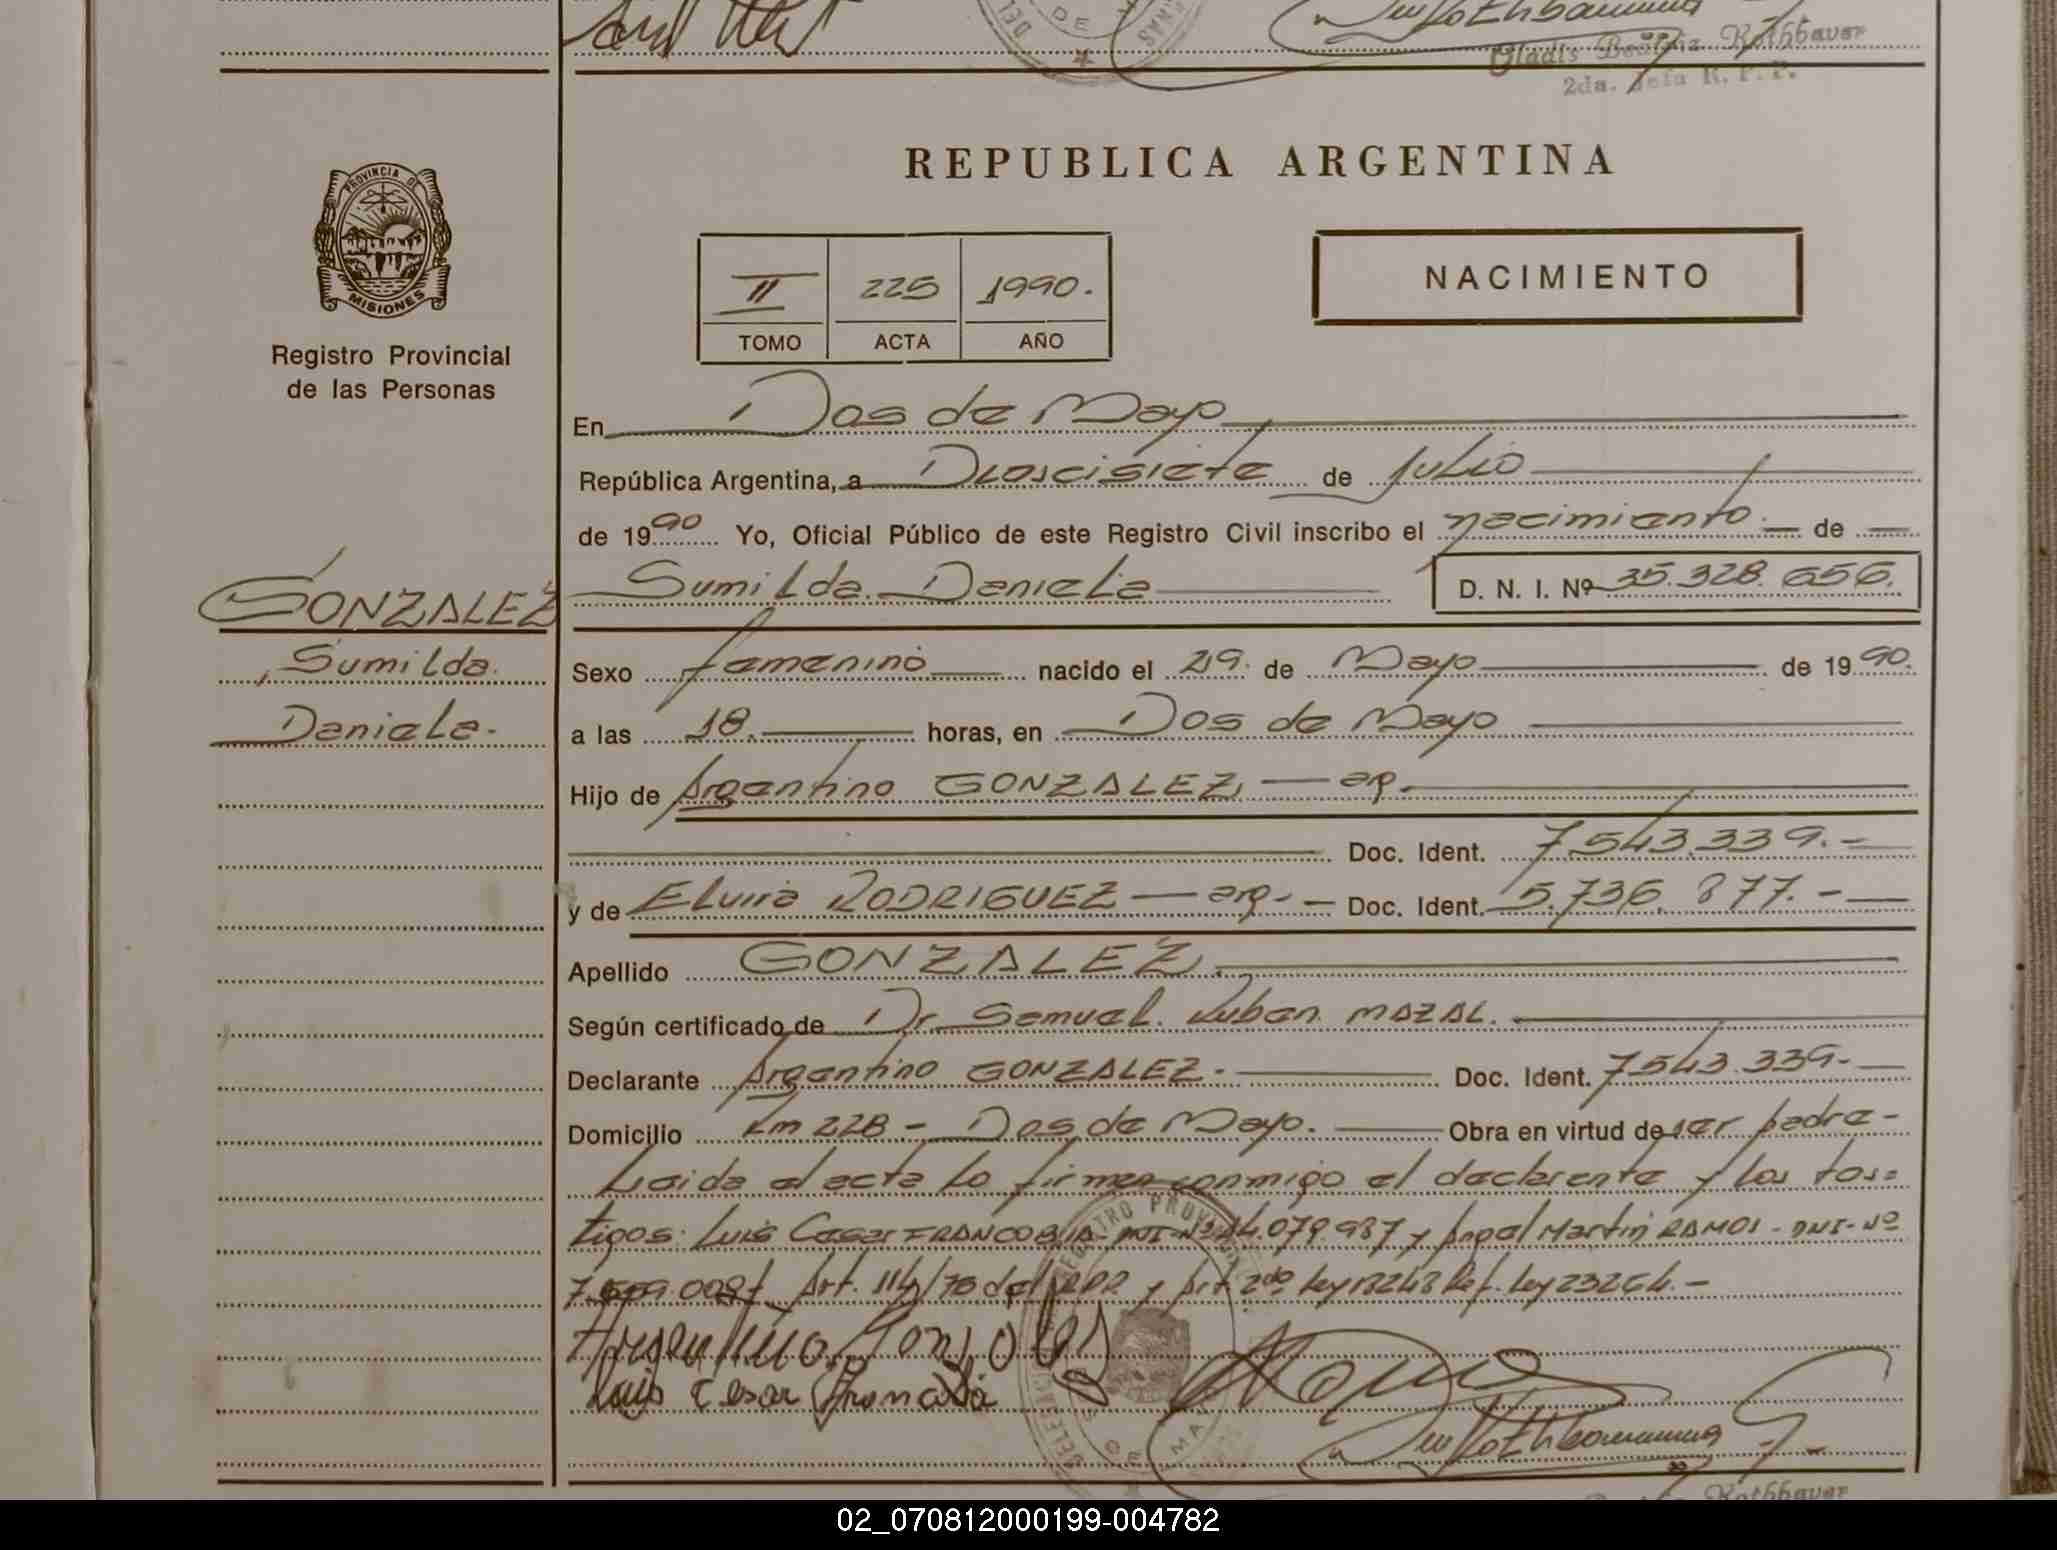 Gladis Beatriz Rothbauer
2da. Jefa R. P. P.
REPUBLICA ARGENTINA
PROVINCIA DE
MISIONES
Registro Provincial
de las Personas
II 225 1990.
TOMO ACTA AÑO
NACIMIENTO
En Dos de Mayo
República Argentina, a Dioscisiete de Julio
de 1990 Yo, Oficial Público de este Registro Civil inscribo el nacimiento de
Sumilda Daniela D. N. I. Nº 35.328.656.
GONZALEZ
Sumilda
Daniela.
Sexo femenino nacido el 29. de Mayo de 1990.
a las 18. horas, en Dos de Mayo
Hijo de Argentino GONZALEZ, — arg.
Doc. Ident. 7.543.339.-
y de Elvira RODRIGUEZ — arg.- Doc. Ident. 5.736.877.-
Apellido GONZALEZ.
Según certificado de Dr. Samuel Ruben MAZAL.
Declarante Argentino GONZALEZ.- Doc. Ident. 7.543.339.-
Domicilio Km 228 - Dos de Mayo. Obra en virtud de ser padre-
Leida el acta la firman conmigo el declarante y los tes=
tigos: Luis Cesar FRANCO DNI-Nº 14.079.937 y Angel Martin RAMOS - DNI-Nº
Art. 114/78 del RPP y Art 2do Ley 18248 Ref. Ley 23264.-
Argentino Gonzalez
Luis Cesar
Rothbauer
02_070812000199-004782